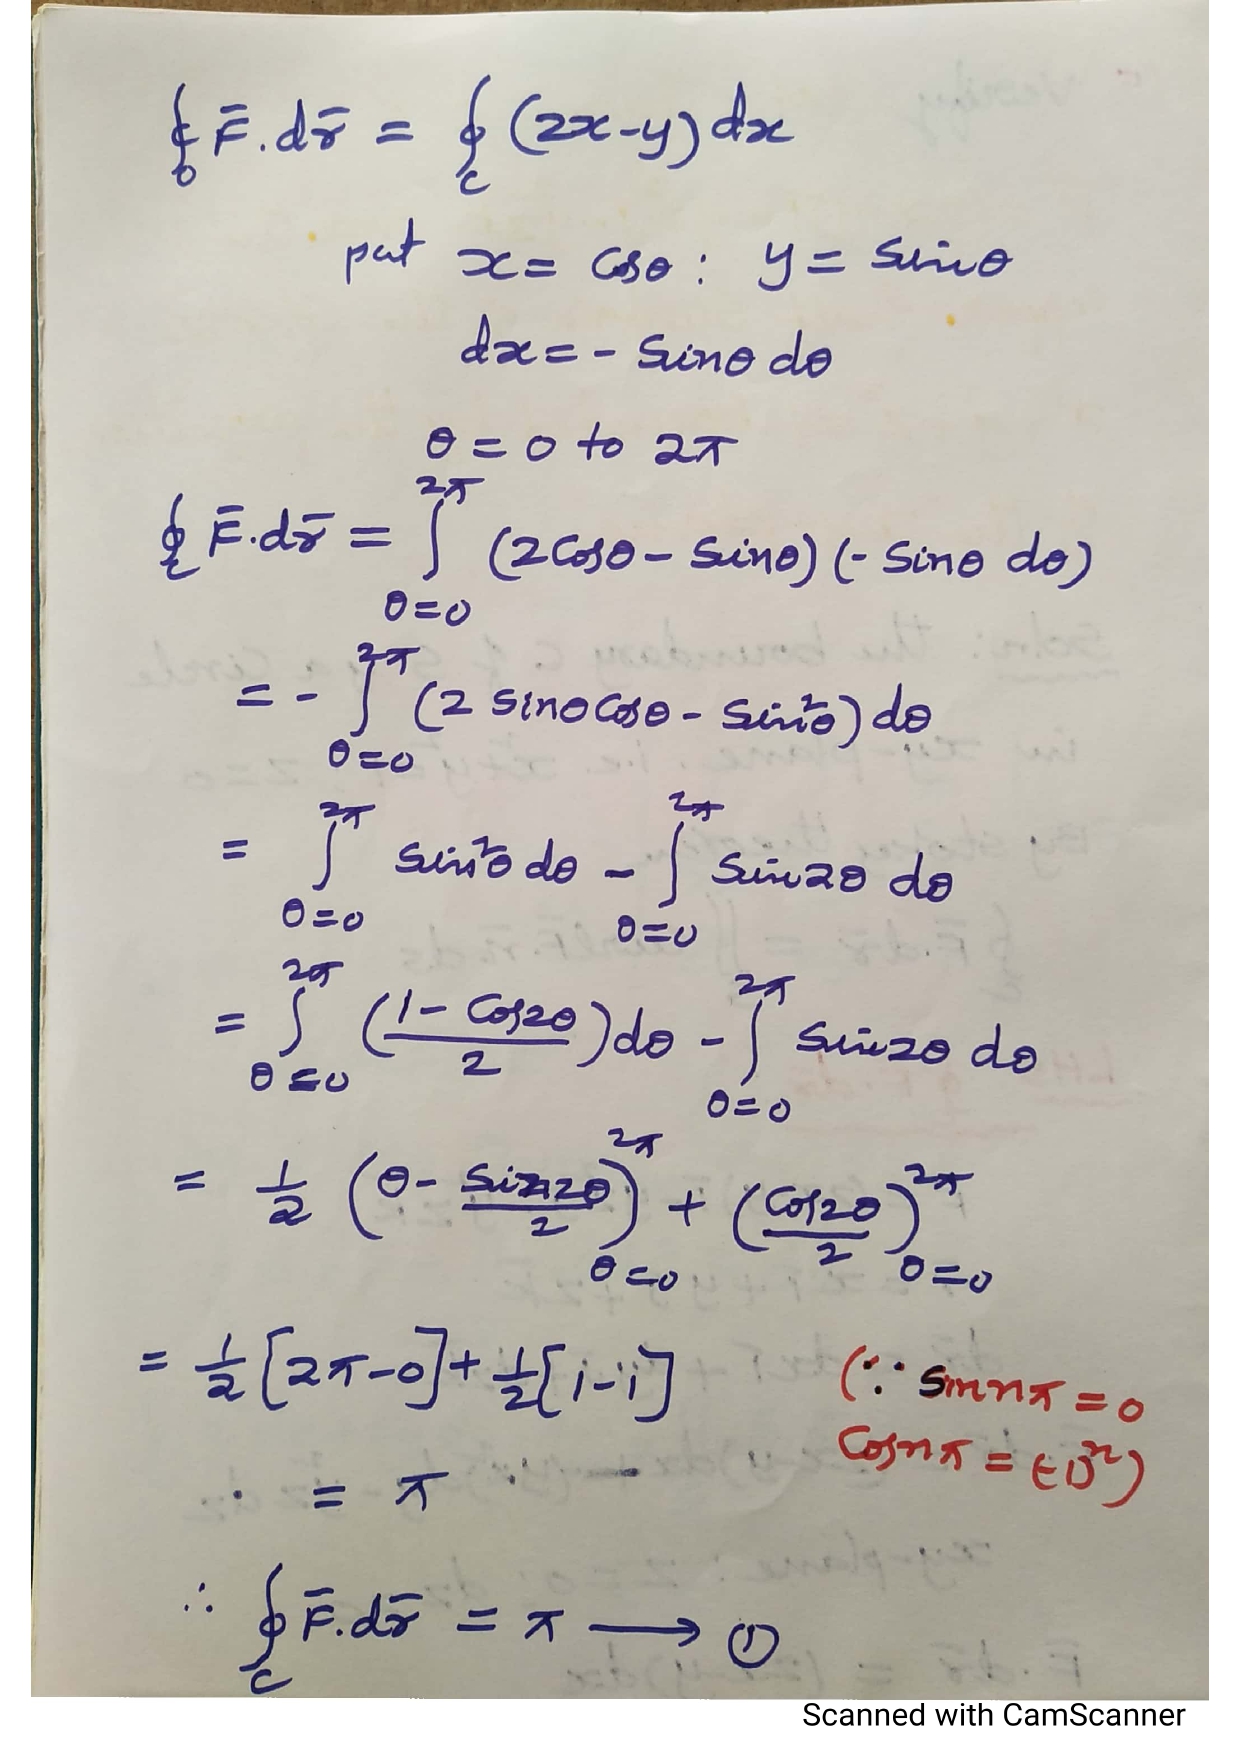 ∮_C F̄.dr̄ = ∮_C (2x-y) dx
put x = Cosθ : y = Sinθ
dx = - Sinθ dθ
θ = 0 to 2π
∮_C F̄.dr̄ = ∫_{θ=0}^{2π} (2Cosθ - Sinθ) (- Sinθ dθ)
= - ∫_{θ=0}^{2π} (2 Sinθ Cosθ - Sin²θ) dθ
= ∫_{θ=0}^{2π} Sin²θ dθ - ∫_{θ=0}^{2π} Sin2θ dθ
= ∫_{θ=0}^{2π} ((1 - Cos2θ)/2) dθ - ∫_{θ=0}^{2π} Sin2θ dθ
= 1/2 (θ - Sin2θ/2)_{θ=0}^{2π} + (Cos2θ/2)_{θ=0}^{2π}
= 1/2 [2π-0] + 1/2 [1-1] (∵ Sin nπ = 0
Cos nπ = (-1)ⁿ)
= π
∴ ∮_C F̄.dr̄ = π ⟶ ①
Scanned with CamScanner